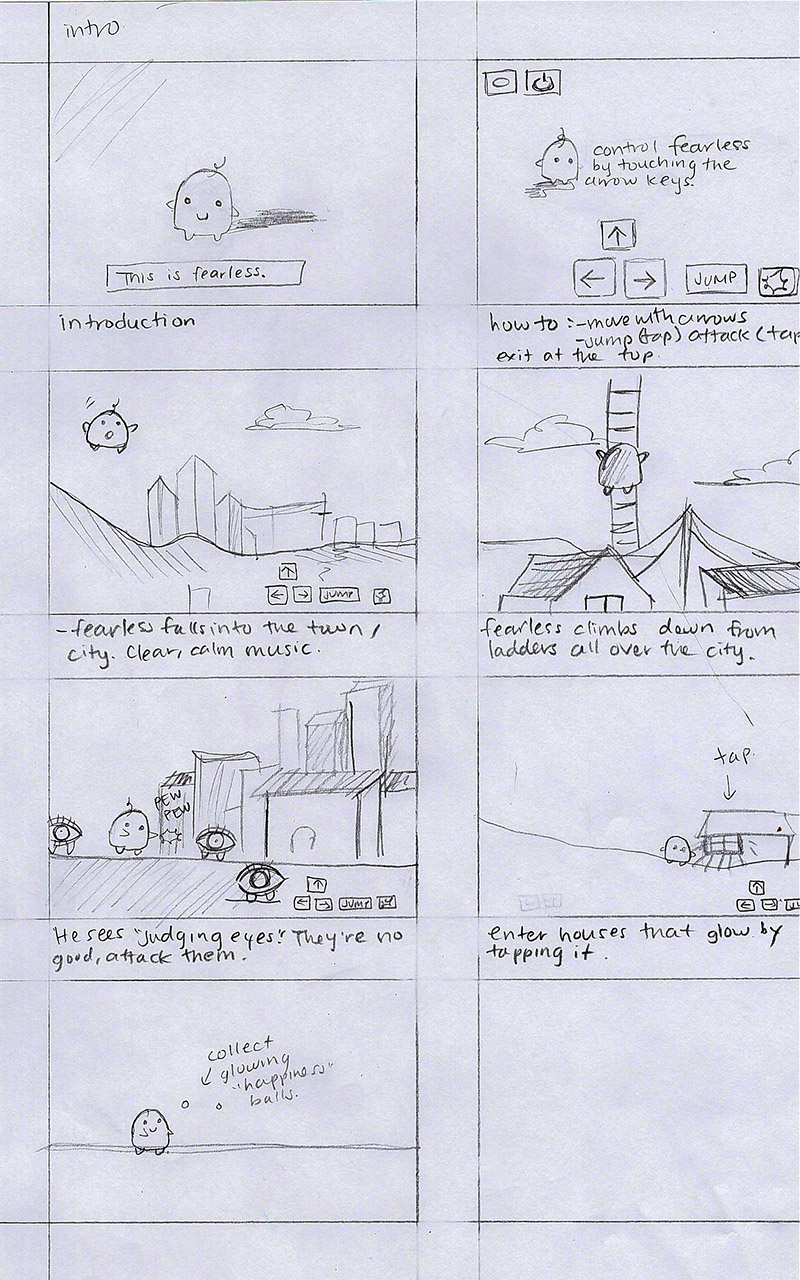 intro
This is fearless.
introduction
control fearless
by touching the
arrow keys.
JUMP
how to :-move with arrows
-jump (tap) attack (tap
exit at the top.
JUMP
-fearless falls into the town/
city. Clear, calm music.
fearless climbs down from
ladders all over the city.
PEW
PEW
JUMP
He sees "judging eyes". They're no
good, attack them.
tap.
enter houses that glow by
tapping it.
collect
glowing
"happiness"
balls.